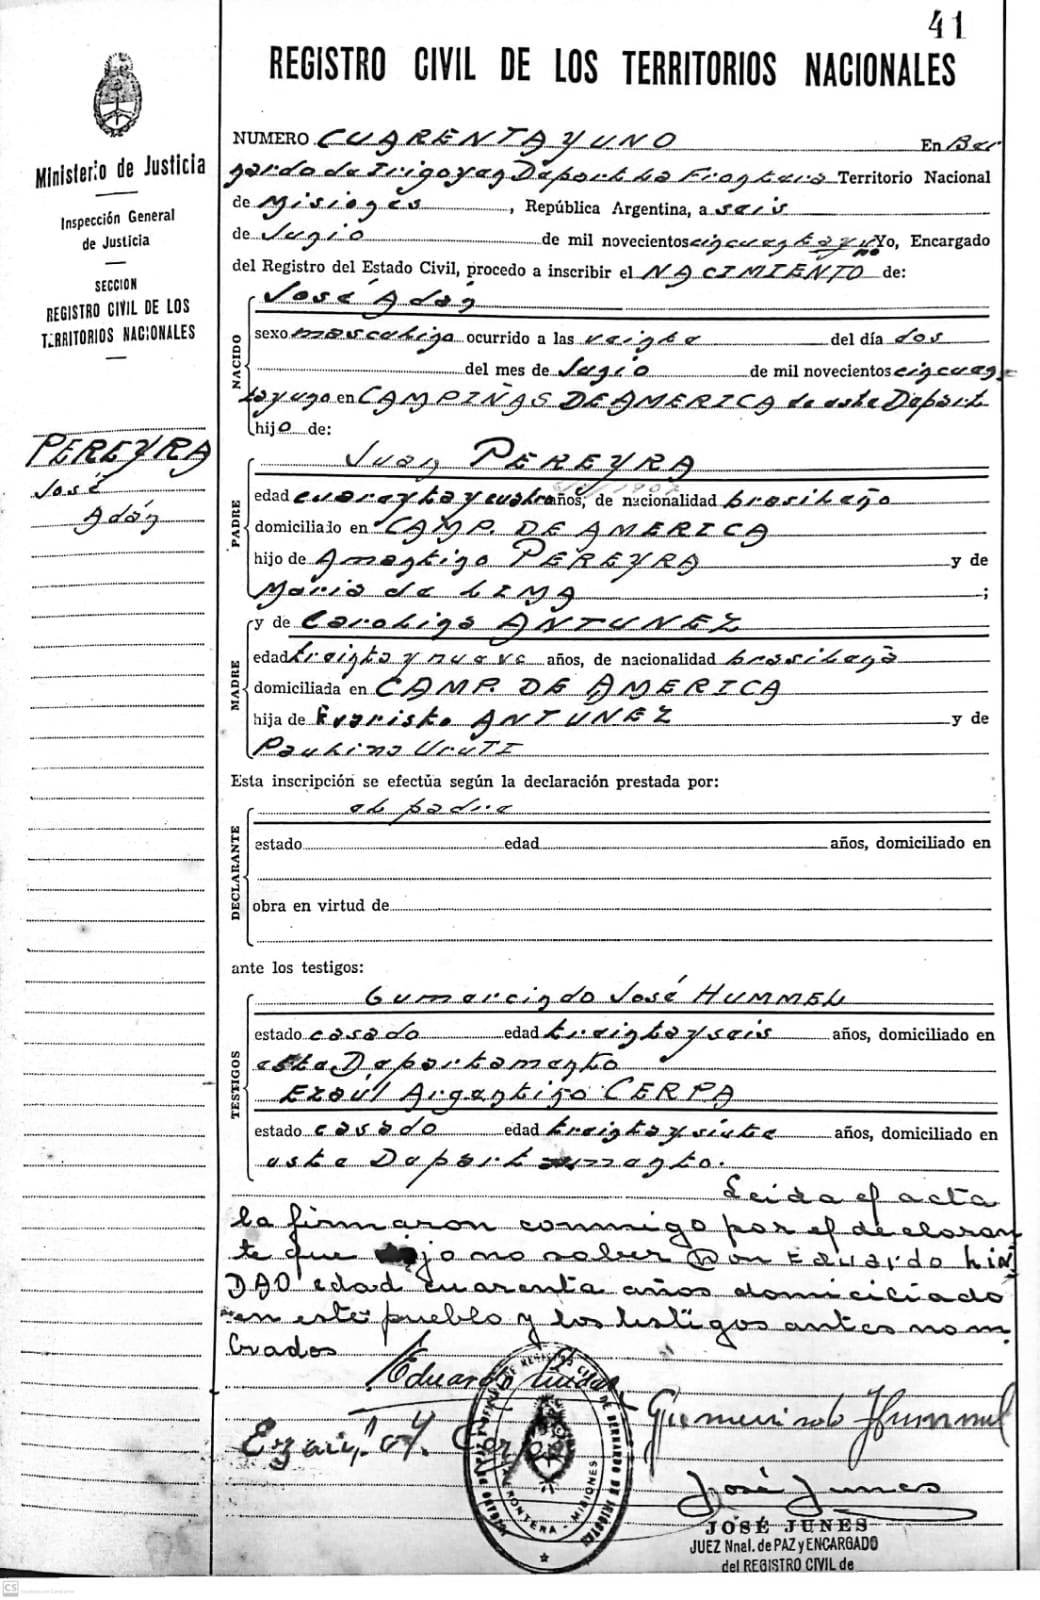 41
REGISTRO CIVIL DE LOS TERRITORIOS NACIONALES
Ministerio de Justicia
Inspección General
de Justicia
SECCION
REGISTRO CIVIL DE LOS
TERRITORIOS NACIONALES
PEREYRA
José
Adán
NUMERO CUARENTA Y UNO En Ber
nardo de Irigoyen Depart La Frontera Territorio Nacional
de Misiones, República Argentina, a seis
de Junio de mil novecientos cincuentayuno Yo, Encargado
del Registro del Estado Civil, procedo a inscribir el NACIMIENTO de:
NACIDO
José Adán
sexo masculino ocurrido a las veinte del día dos
del mes de Junio de mil novecientos cincuen
tayuno en CAMPIÑAS DE AMERICA de este Depart
hijo de:
PADRE
Juan PEREYRA
edad cuarenta y cuatro años, de nacionalidad brasileño
domiciliado en CAMP. DE AMERICA
hijo de Amantino PEREYRA y de
Maria de LIMA ;
MADRE
y de Carolina ANTUNEZ
edad treinta y nueve años, de nacionalidad brasileña
domiciliada en CAMP. DE AMERICA
hija de Evaristo ANTUNEZ y de
Paulina
Esta inscripción se efectúa según la declaración prestada por:
DECLARANTE
el padre
estado edad años, domiciliado en
obra en virtud de
ante los testigos:
TESTIGOS
Gumarcindo José HUMMEL
estado casado edad treintayseis años, domiciliado en
este Departamento
Ezaúl Argentino CERPA
estado casado edad treintaysiete años, domiciliado en
este Departamento.
Leida el acta
la firmaron conmigo por el declaran
te que dijo no saber Don Eduardo LIN
DAO edad cuarenta años domiciliado
en este pueblo y los testigos antes nom
brados
Eduardo
Hummel
José Junes
JOSÉ JUNES
JUEZ Nnal. de PAZ y ENCARGADO
del REGISTRO CIVIL de
FRONTERA - MISIONES
CS